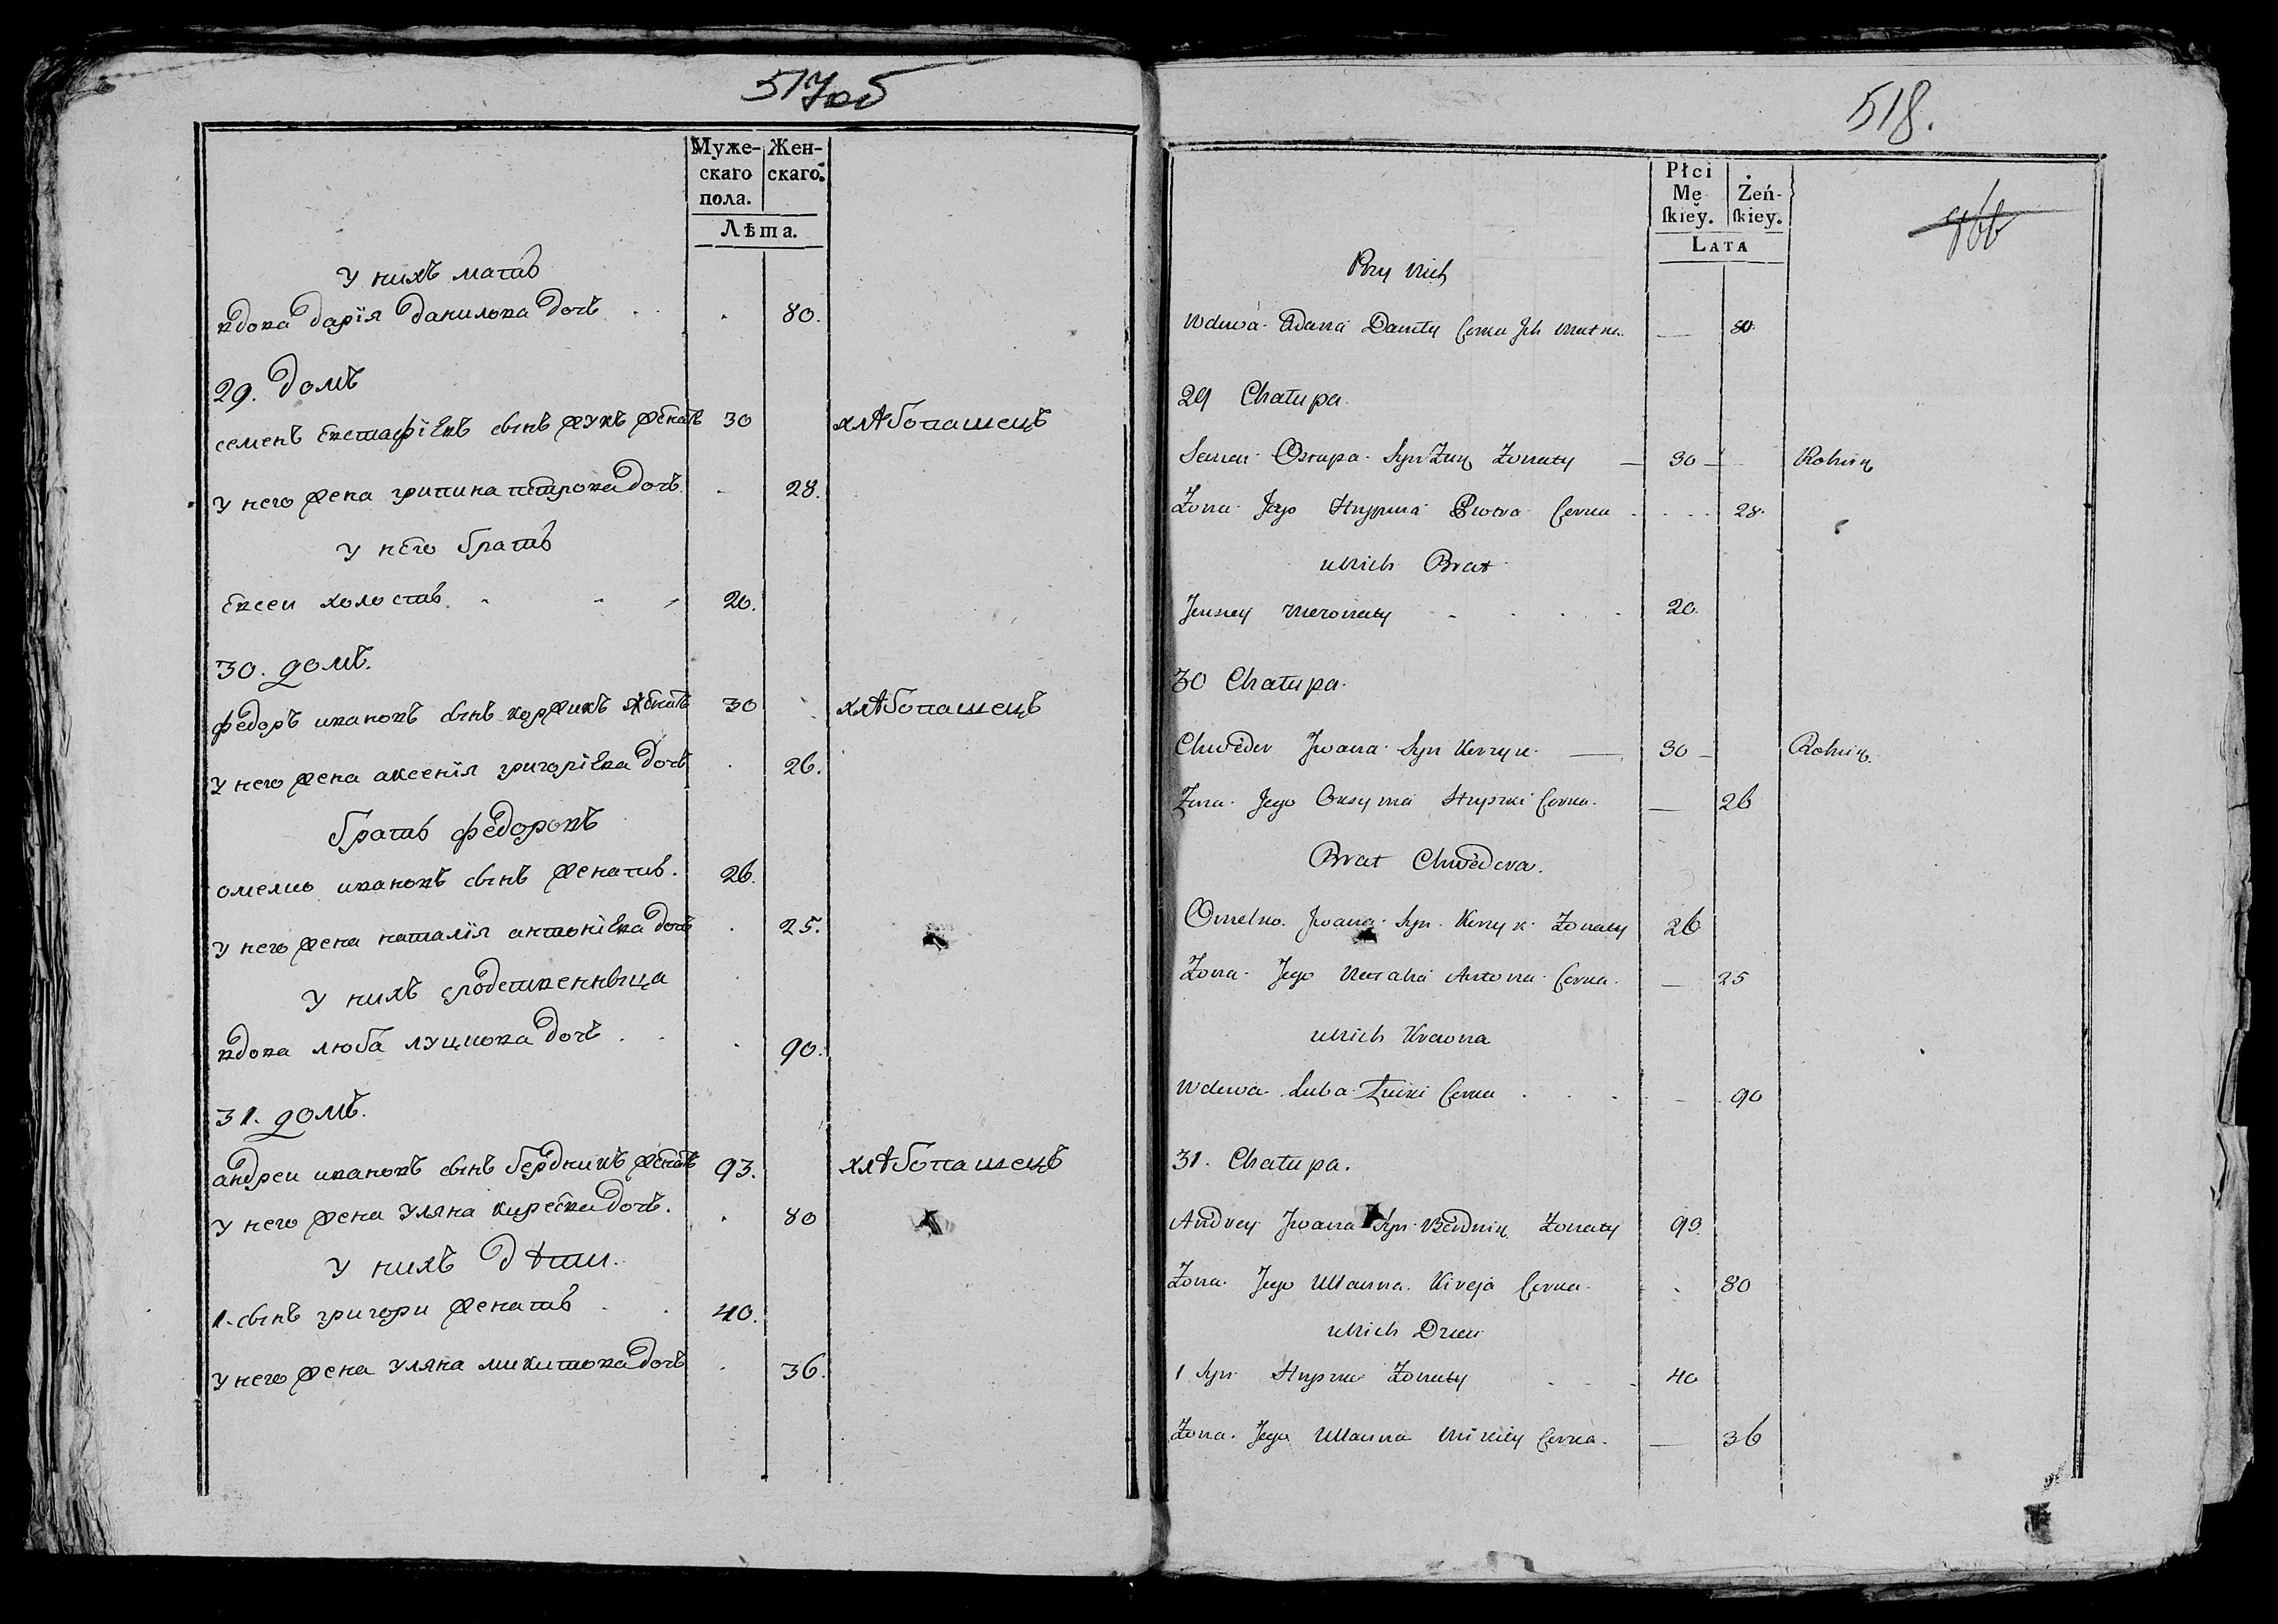 517об
Муже-
скаго
пола.
Жен-
скаго.
Лѣта.
У нихъ мать
вдова Дарїя Данилова дочь 80.
29. домъ
семенъ Евстафіевъ сынъ жукъ женатъ 30 хлѣбопашецъ
У него жена грипина петрова дочь 28.
У него братъ
Евсеи холостъ 20.
30. домъ.
федоръ ивановъ сынъ коржикъ женатъ 30 хлѣбопашецъ
У него жена аксенїя григоріева дочь 26.
братъ федоровъ
омелко ивановъ сынъ женатъ. 26.
У него жена наталїя антоніева дочь 25.
У нихъ сродственныца
вдова люба луцкова дочь 90.
31. домъ.
андреи ивановъ сынъ бердникъ женатъ 93. хлѣбопашецъ
У него жена Уляна кирѣева дочь. 80
У нихъ дѣти.
1. сынъ григори женатъ 40.
У него жена Уляна микитова дочь 36.
518.
Płci
Mę
ſkiey.
Żeń-
ſkiey.
LATA
Przy nich
Wdowa Daniły Corka Jch Matka 80
29 Chałupa.
Syn Żuk Żonaty 30 Rolnik
Żona Jego Hrypina Piotra Corka 28.
u Nich Brat
Jeusiey nieżonaty 20.
30 Chałupa.
Chwedor Jwana Syn Korżyk 30 Rolnik
Żona Jego Oxynia Hryszki Corka. 26
Brat Chwedora.
Omelko Jwana Syn Korżyk Żonaty 26
Żona Jego Natalia Antona Corka. 25
u Nich Krewna
Wdowa Luba Łucki Corka 90
31. Chałupa.
Andrey Jwana Syn Berdnik Żonaty 93
Żona Jego Ulanna Kireja Corka. 80
u Nich Dzieci
1 Syn Hryszko Żonaty 40
Żona Jego Ulanna Mikity Corka. 36